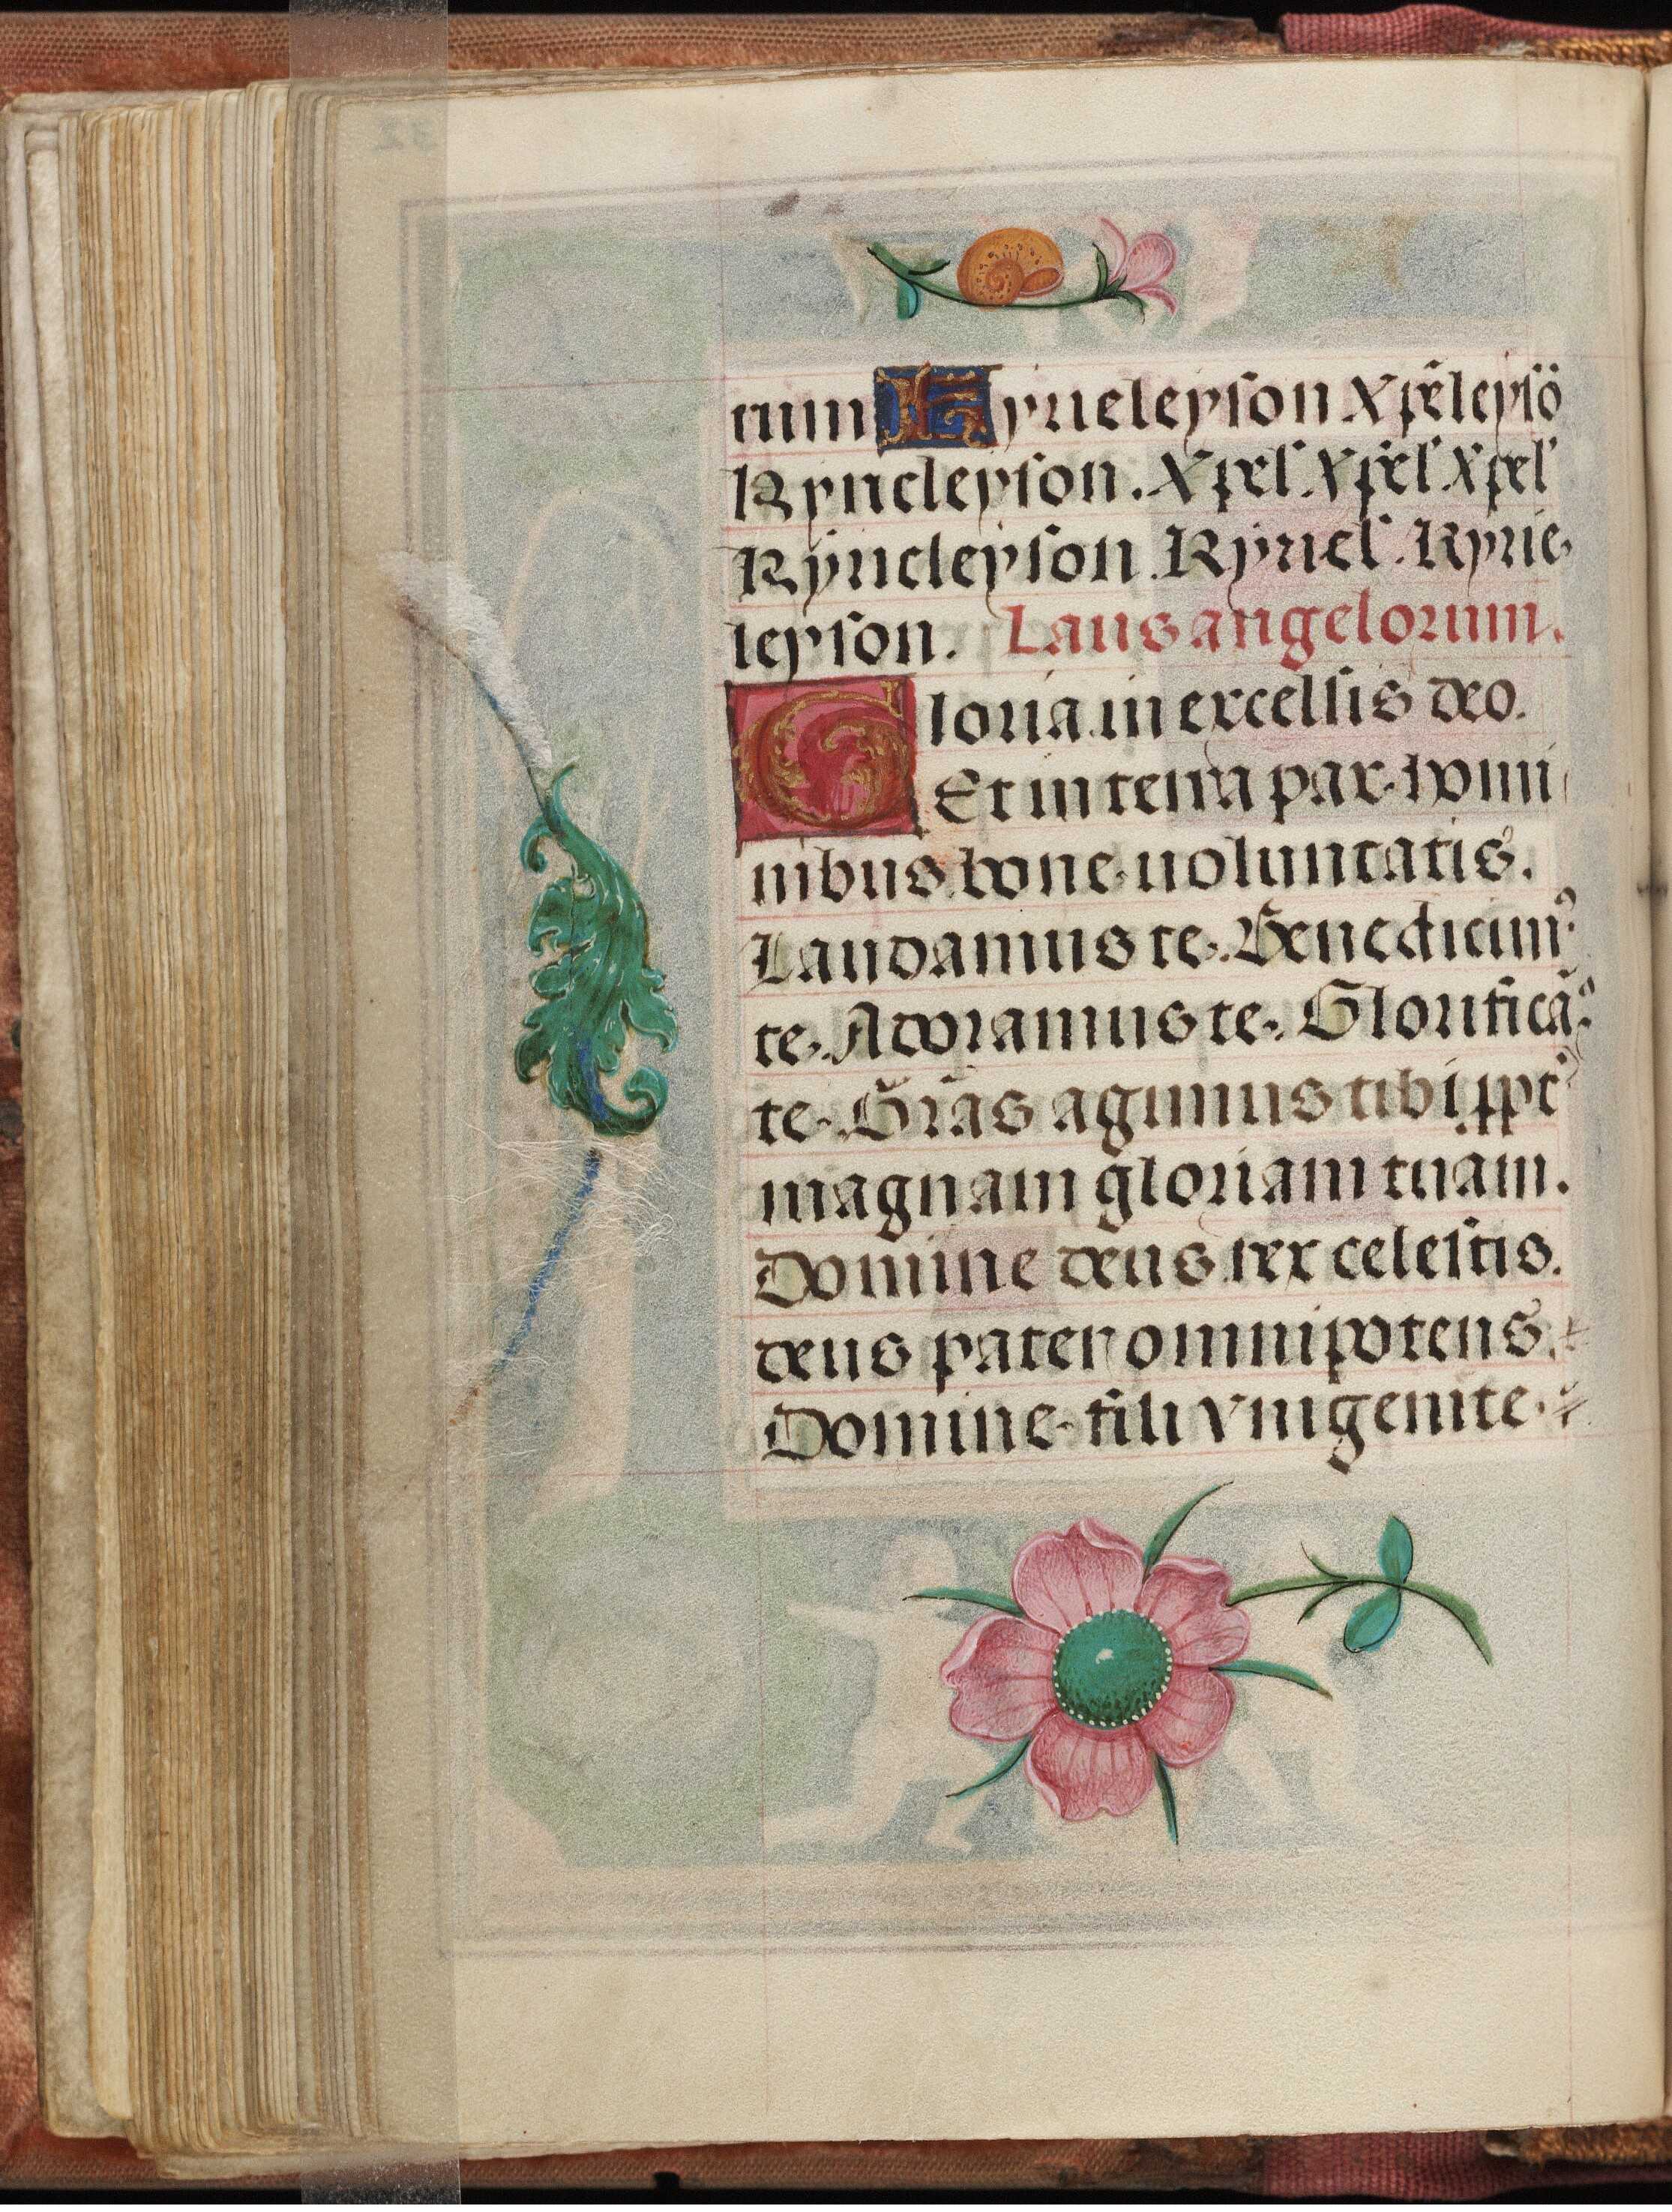 rum Kyrieleyson Xp̄eleysō
Kyrieleyson. Xp̄el' Xp̄el' Xp̄el'
Kyrieleyson. Kyriel'. Kyrie
leyson. Laus angelorum.
Gloria in excelsis deo.
Et in terra pax homi
nibus bone uoluntatis.
Laudamus te. Benedicim⁹
te. Adoramus te. Glorificam⁹
te. Grās agimus tibi ꝓpt'
magnam gloriam tuam.
Domine deus rex celestis.
deus pater omnipotens.
Domine fili vnigenite